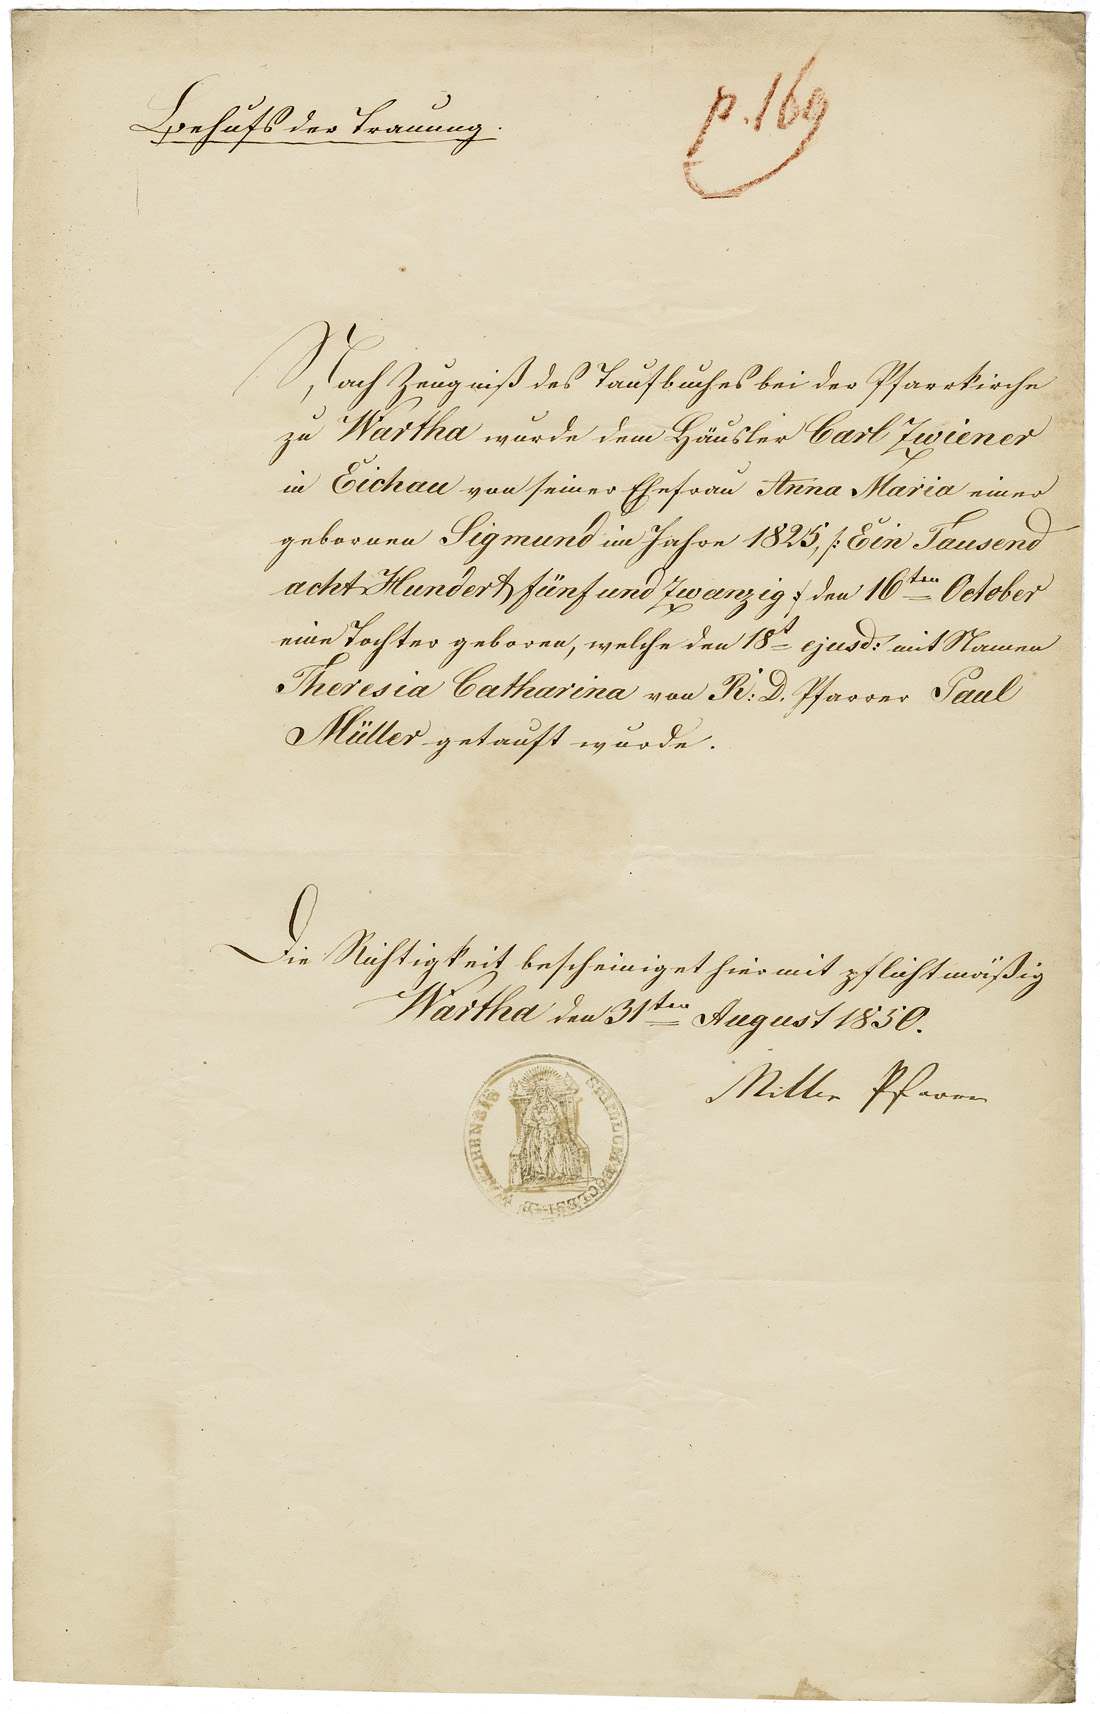 Behufs der Trauung.
p. 169
Nach Zeugniß des Taufbuches bei der Pfarrkirche
zu Wartha wurde dem Häusler Carl Zwiener
in Eichau von seiner Ehefrau Anna Maria einer
gebornen Sigmund im Jahre 1825, /: Ein Tausend
acht Hundert fünf und Zwanzig :/ den 16ten October
eine Tochter geboren, welche den 18t ejusd: mit Namen
Theresia Catharina von R: D. Pfarrer Paul
Müller getauft wurde.
Die Richtigkeit bescheiniget hiermit pflichtmäßig
Wartha den 31ten August 1850.
Pfarrer
SIGILLUM ECCLESIAE WARTHENSIS